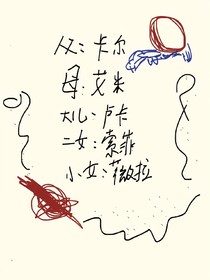 父：卡尔
母：艾米
大儿：卢卡
二女：索菲
小女：薇拉